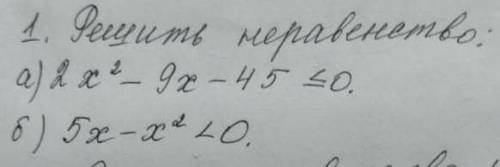 1. Решить неравенство:
а) 2x² - 9x - 45 ≤ 0.
б) 5x - x² < 0.